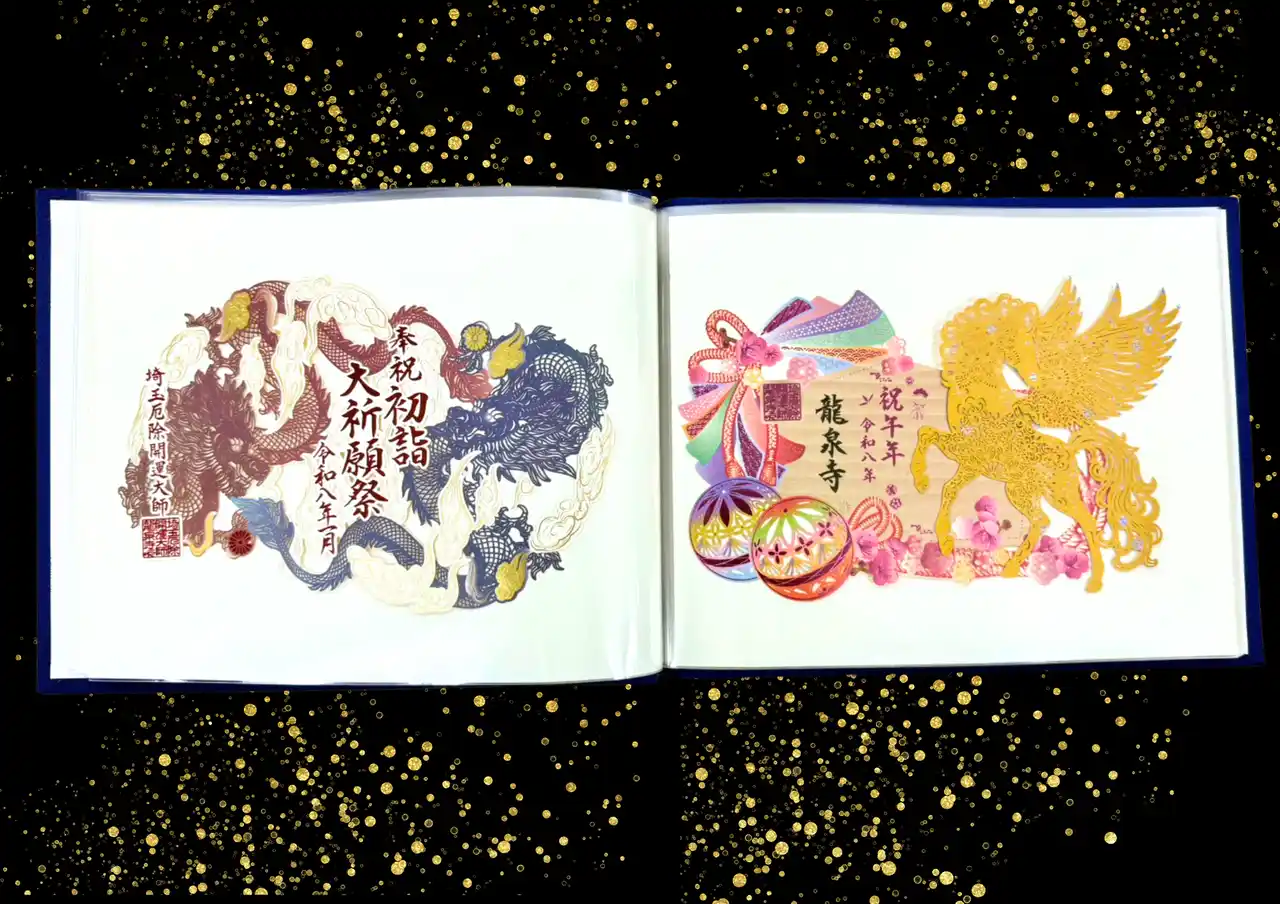 奉祝初詣
大祈願祭
令和八年一月
埼玉厄除開運大師
祝午年
令和八年
龍泉寺